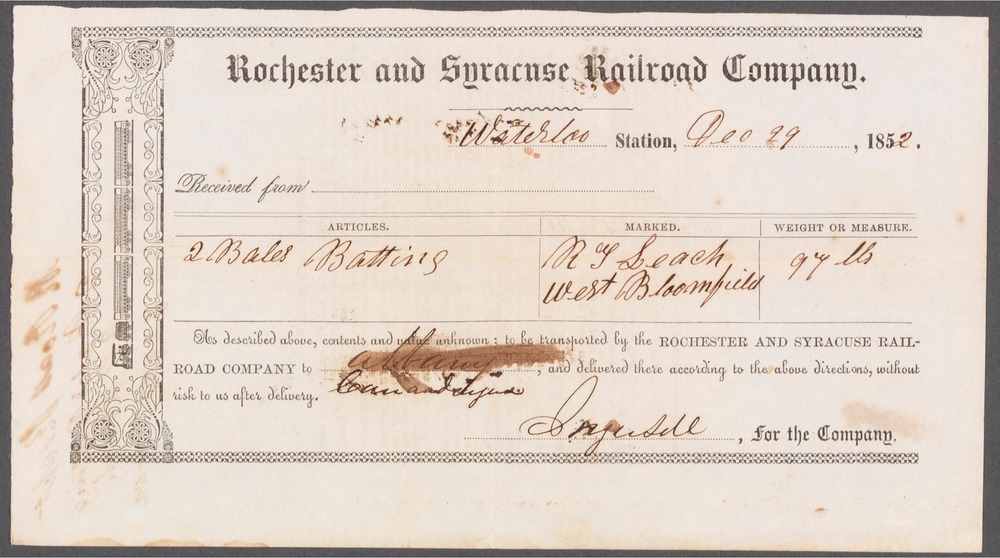 Rochester and Syracuse Railroad Company.
Waterloo Station, Dec 29, 1852.
Received from
ARTICLES. MARKED. WEIGHT OR MEASURE.
2 Bales Batting R Leach 97 lb
West Bloomfield
As described above, contents and value unknown; to be transported by the ROCHESTER AND SYRACUSE RAIL-
ROAD COMPANY to , and delivered there according to the above directions, without
risk to us after delivery. Canandaigua
Ingersoll, For the Company.